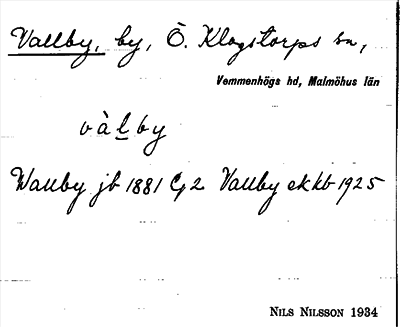 Vallby, by, Ö. Klagstorps sn,
Vemmenhögs hd, Malmöhus län
vàḻby
Wallby jb 1881 G2 Vallby ekkb 1925
NILS NILSSON 1934